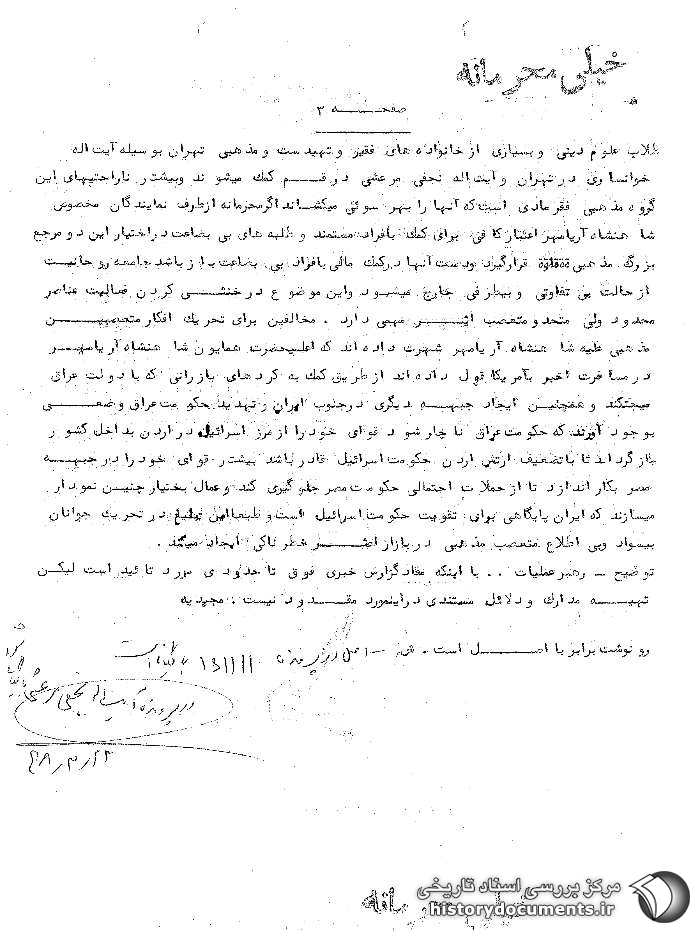 خیلی محرمانه
صفحــــه ۳
طلاب علوم دینی و بسیاری از خانواده های فقیر و تهیدست و مذهبی تهران بوسیله آیت اله
خوانساری در تهران و آیت اله نجفی مرعشی در قـــم کمک میشوند و بیشتر ناراحتیهای این
گروه مذهبی فقر مادی است که آنها را بهر سوئی میکشاند اگر محرمانه از طرف نمایندگان مخصوص
شاهنشاه آریامهر اعتبار کافی برای کمک بافراد مستمند و طلبه های بی بضاعت در اختیار این دو مرجع
بزرگ مذهبی قرار گیرد و دست آنها در کمک مالی بافراد بی بضاعت باز باشد جامعه روحانیت
از حالت بی تفاوتی و بیطرفی خارج میشود و این موضوع در خنثـــی کردن فعالیت عناصر
محدود ولی متحد و متعصب اثـــر مهمی دارد . مخالفین برای تحریک افکار متعصبیـــن
مذهبی علیه شاهنشاه آریامهر شهرت داده اند که اعلیحضرت همایون شاهنشاه آریامهـــر
در مسافرت اخیر بآمریکا قول داده اند از طریق کمک به کردهای بارزانی که با دولت عراق
میجنگند و همچنین ایجاد جبهـــه دیگری در جنوب ایران و تهدید حکومت عراق وضعـــی
بوجود آورند که حکومت عراق ناچار شود قوای خود را از مرز اسرائیل در اردن بداخل کشور
بازگرداند تا با تضعیف ارتش اردن حکومت اسرائیل قادر باشد بیشتر قوای خود را در جبهـــه
مصر بکار اندازد تا از حملات احتمالی حکومت مصر جلوگیری کند و عمال بختیار چنین نمودار
میسازند که ایران پایگاهی برای تقویت حکومت اسرائیل است و طبعا این تبلیغ در تحریک جوانان
بیسواد وبی اطلاع متعصب مذهبی در بازار اثـــر خطرناکی ایجاد میکند .
توضیح ـ رهبر عملیات .. با اینکه مفاد گزارش خبری فوق تا حدودی مورد تائید است لیکن
تهیـــه مدارک و دلائل مستندی در اینمورد مقـــدور نیست . مجیدیه
رونوشت برابر با اصـــل است . اصل در پرونده
در پرونده آیت اله نجفی مرعشی
۴۸/۳/۲۲
خیلی محرمانه
مرکز بررسی اسناد تاریخی
historydocuments.ir